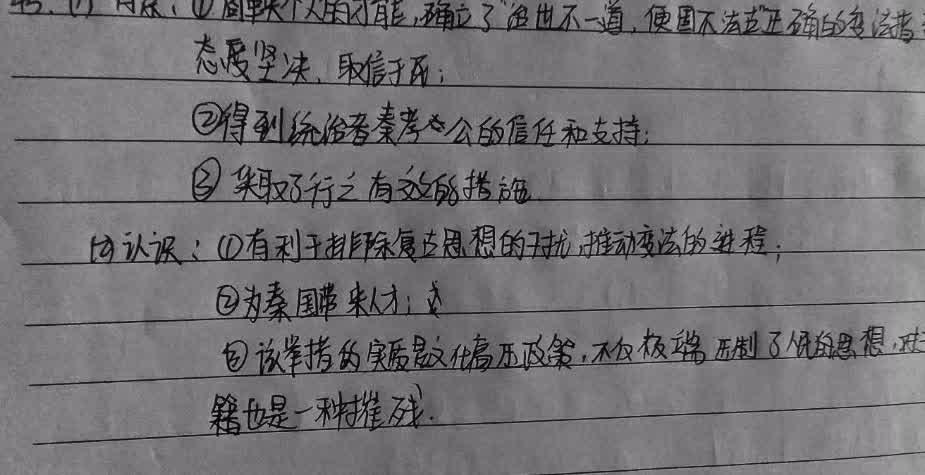 (1) 商鞅个人的才能,确立了"治世不一道,便国不法古"正确的变法
态度坚决,取信于民;
②得到统治者秦孝公的信任和支持;
③采取了行之有效的措施
(2)认识:①有利于排除复古思想的干扰,推动变法的进程;
②为秦国带来人才;
③该举措的实质是文化高压政策,不仅极端压制了人民的思想,对
籍也是一种摧残.